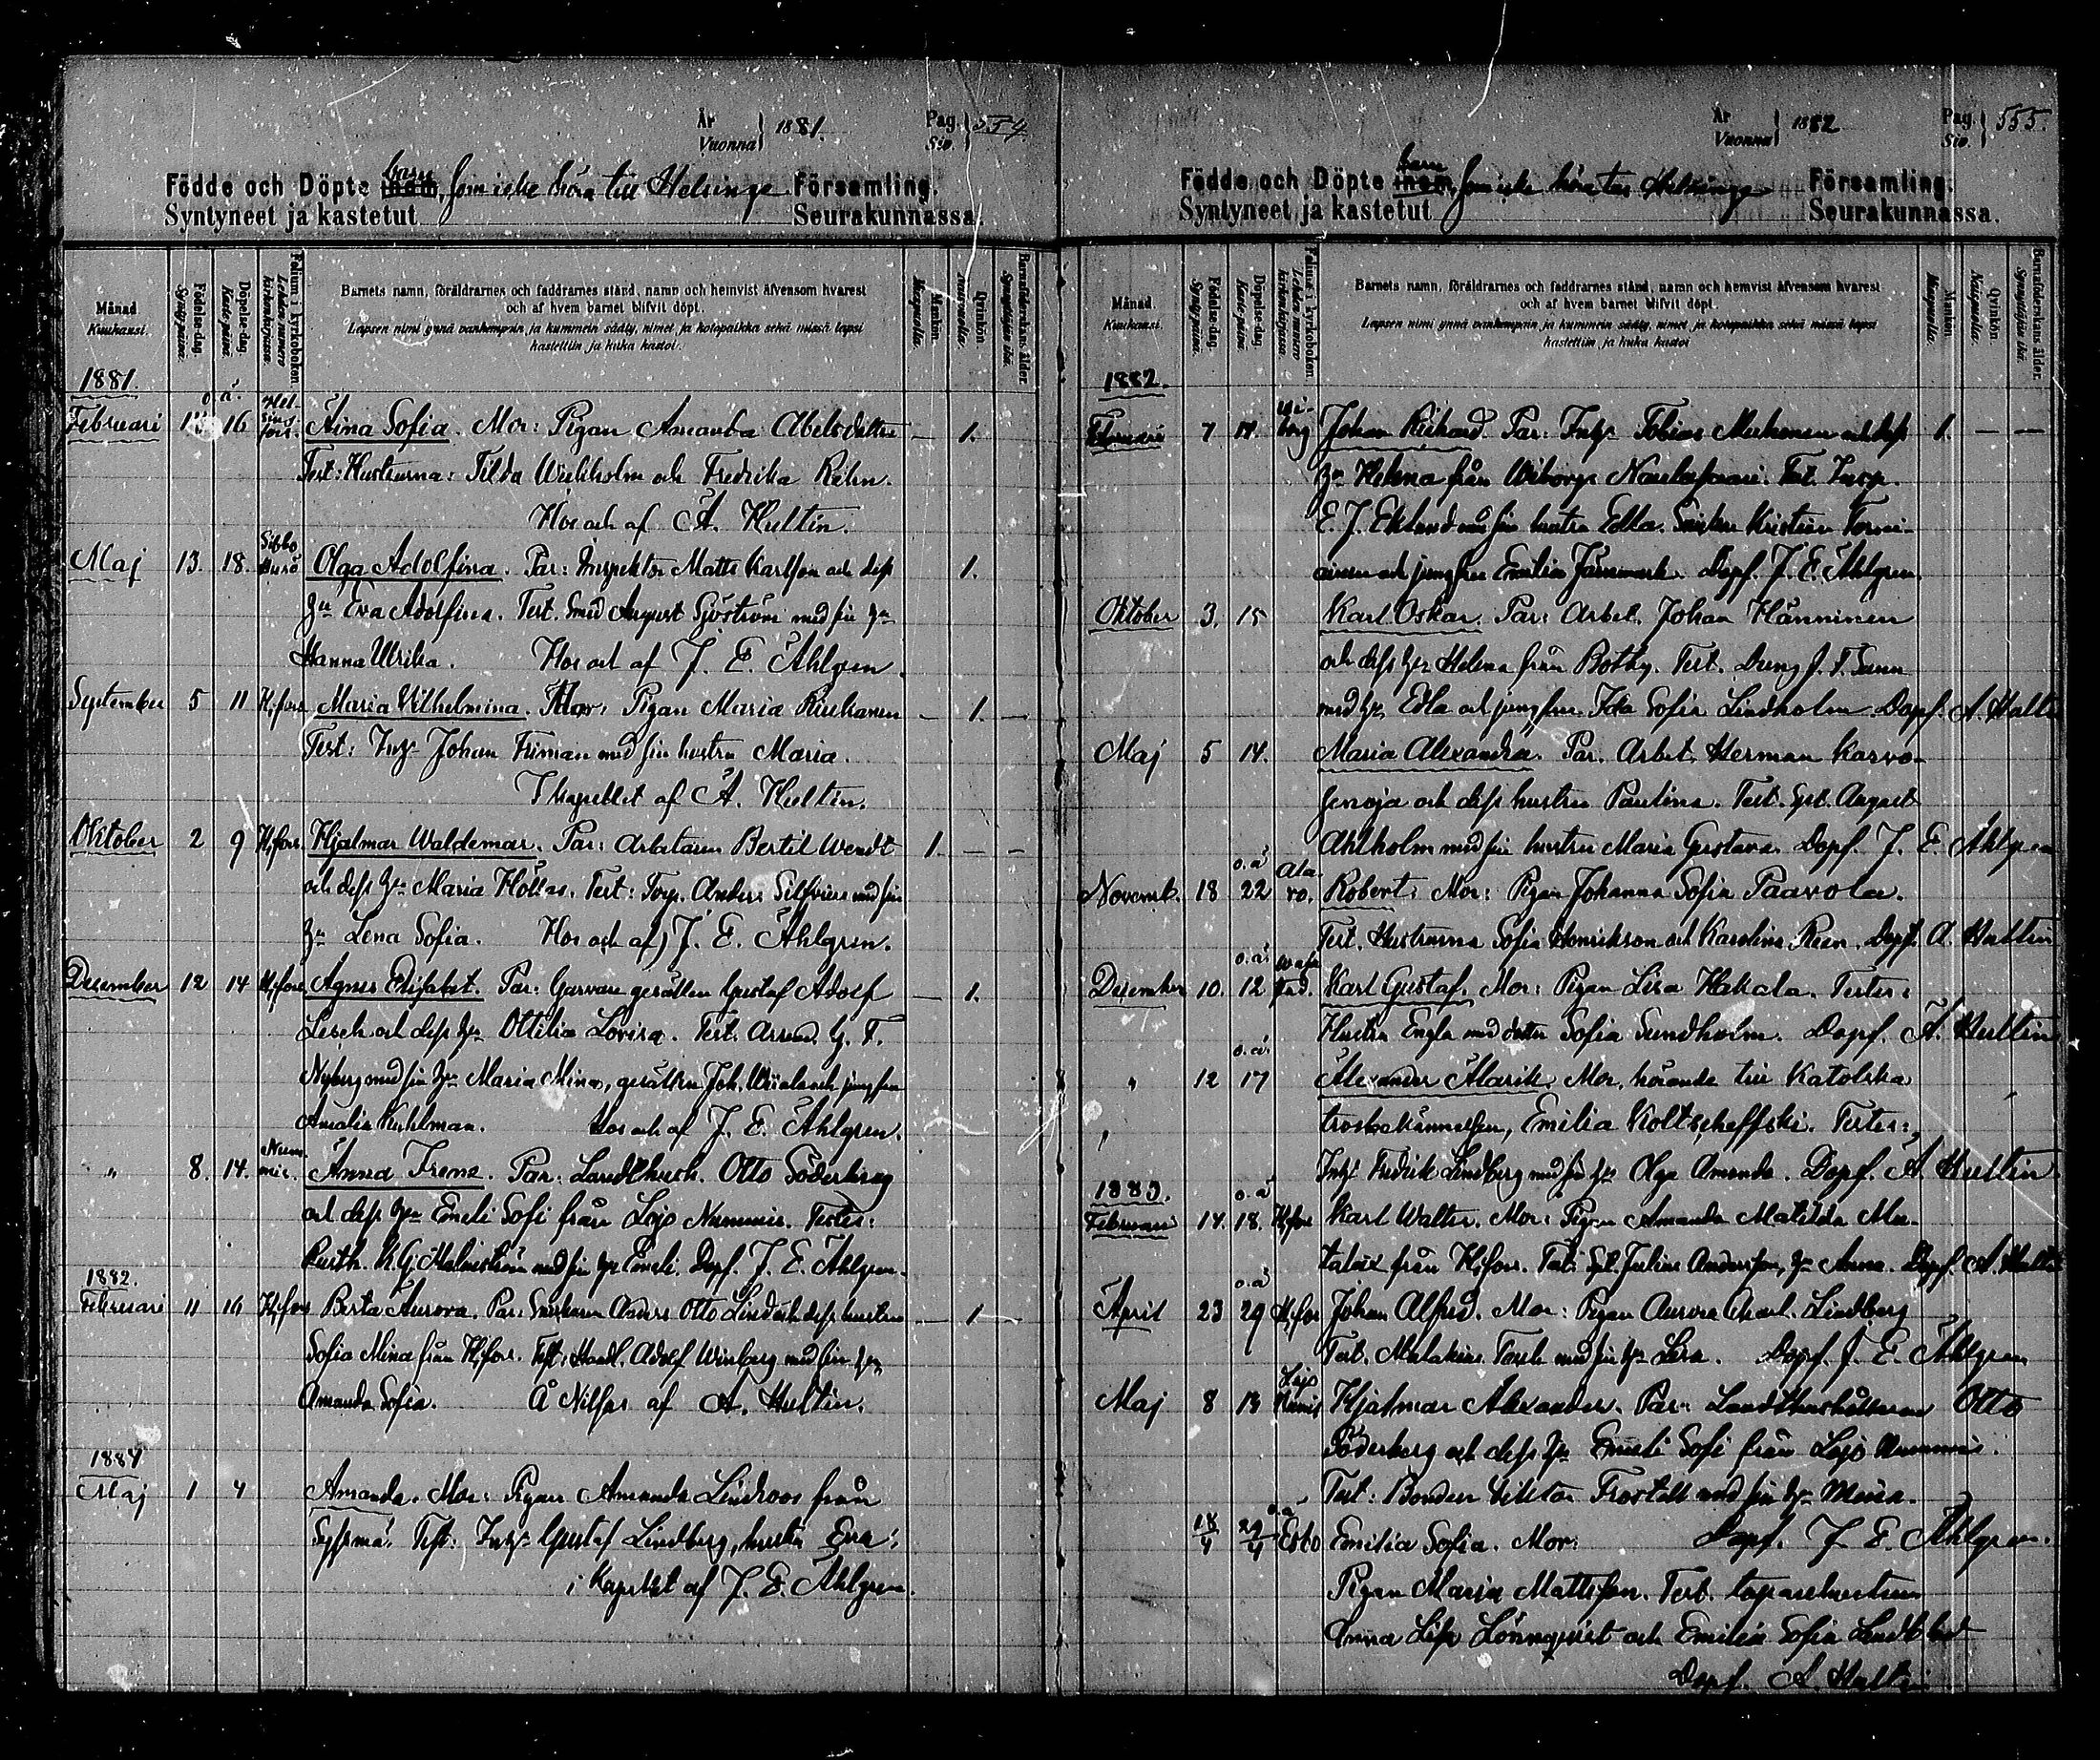 År
Vuonna } 1881.
Pag.
Siv. } 554
Födde och Döpte inom barn, som icke höra till Helsinge Församling.
Syntyneet ja kastetut Seurakunnassa.
Månad. Kuukausi.
Födelse-dag. Syntypäivä.
Döpelse-dag. Kaste-päivä
Folium i kyrkoboken. Lehden numero kirkonkirjassa.
Barnets namn, föräldrarnes och faddrarnes stånd, namn och hemvist äfvensom hvarest
och af hvem barnet blifvit döpt.
Lapsen nimi ynnä vanhempain ja kummein sääty, nimet ja kotopaikka sekä missä lapsi
kastettiin ja kuka kastoi.
Mankön. Miespuolia.
Qvinkön. Naispuolia.
Barnaföderskans ålder. Synnyttäjän ikä.
1881.
o. ä.
Februari 16 Helsingfors. Aina Sofia. Mor: Pigan Amanda Abelsdotter — 1.
Test: Hustrurna: Tilda Wickholm och Fredrika Rehn.
Hos och af A. Hultin.
Maj 13. 18. Sibbo Olga Adolfina. Par: Inspektor Matts Karlsson och dess 1.
Hu Eva Adolfina. Test. Smed August Sjöström med sin Hu
Hanna Ulrika. Hos och af J. E. Ahlgren.
September 5 11 H:fors Maria Vilhelmina. Mor: Pigan Maria — 1. —
Test: Inh. Johan Friman med sin hustru Maria.
I kapellet af A. Hultin.
Oktober 2 9 H:fors Hjalmar Waldemar. Par: Arbetaren Bertil Wendt 1. — —
och dess Hu Maria Höllas. Test: Torp. Anders Silfvius med sin
Hu Lena Sofia. Hos och af J. E. Ahlgren.
December 12 14 H:fors Agnes Elisabet. Par: Garfvare gesällen Gustaf Adolf — 1.
Lesch och dess Hu Ottilia Lovisa. Test. G. F.
Nyberg med sin Hu Maria Mina, gesällen Joh. och jungfru
Amalia Kuhlman. Hos och af J. E. Ahlgren.
" 8. 14. Nummis. Anna Irene. Par: Landthush. Otto Söderberg
och dess Hu Emeli Sofi från Lojo Nummis. Testes:
K. G. Malmström med sin Hu Emeli. Dopf. J. E. Ahlgren.
1882.
Februari 11 16 H:fors Berta Aurora. Par: Snickaren Anders Otto Lind och dess hustru — 1 —
Sofia Mina från H:fors. Test: Handl. Adolf Winberg med sin Hu
Amanda Sofia. Å Nilsas af A. Hultin.
1884
Maj 1 4 Amanda. Mor: Pigan Amanda Lindroos från
Sysmä. Test: Inh. Gustaf Lindberg, hustru Eva.
i Kapellet af J. E. Ahlgren.
År
Vuonna } 1882
Pag.
Siv. } 555.
Födde och Döpte inom barn som icke höra till Helsinge Församling.
Syntyneet ja kastetut Seurakunnassa.
Månad. Kuukausi.
Födelse-dag. Syntypäivä.
Döpelse-dag. Kaste-päivä.
Folium i kyrkoboken. Lehden numero kirkonkirjassa.
Barnets namn, föräldrarnes och faddrarnes stånd, namn och hemvist äfvensom hvarest
och af hvem barnet blifvit döpt.
Lapsen nimi ynnä vanhempain ja kummein sääty, nimet ja kotopaikka sekä missä lapsi
kastettiin ja kuka kastoi
Mankön. Miespuolia.
Qvinkön. Naispuolia.
Barnaföderskans ålder. Synnyttäjän ikä.
1882.
Februari 7 14 Wiborg Johan Rickard. Par: Inh. Tobias Muhonen och dess 1. — —
Hu Helena från Wiborgs Test. Insp.
E. J. Eklund med sin hustru Edla. Kristian
och jungfru Emilia Järnmark. Dopf. J. E. Ahlgren.
Oktober 3. 15 Karl Oskar. Par: Arbet. Johan Hänninen
och dess Hu Helena från Botby. Test. Dreng J. F.
med Hu Edla och jungfru Ida Sofia Lindholm. Dopf. A. Hultin
Maj 5 14. Maria Alexandra. Par. Arbet. Herman Karvo-
senoja och dess hustru Paulina. Test. August
Ahlholm med sin hustru Maria Gustava. Dopf. J. E. Ahlgren
o. ä
Novemb. 18 22 Alavo. Robert. Mor: Pigan Johanna Sofia Paavola.
Test. Hustrurna Sofia Henrikson och Karolina Reen. Dopf. A. Hultin
o. ä.
December 10. 12 Karl Gustaf. Mor: Pigan Lisa Hakala. Testes:
Hustru Engla med dotter Sofia Sundholm. Dopf. A. Hultin
o. ä.
" 12 17 Alexander Alarik. Mor, hörande till Katolska
trosbekännelsen, Emilia Koltscheffski. Testes:
Inh. Fredrik Lindberg med sin Hu Olga Amanda. Dopf. A. Hultin
1883.
o. ä
Februari 14. 18. H:fors Karl Walter. Mor: Pigan Amanda Matilda Ma-
talax från H:fors. Test: Julius Andersson, Hu Anna. Dopf. A. Hultin
o. ä
April 23 29 H:fors Johan Alfred. Mor: Pigan Aurora Charl. Lindberg
Test. Malakias med sin Hu Lisa. Dopf. J. E. Ahlgren
Maj 8 13 Lojo Numis Hjalmar Alexander. Par: Landthushållaren Otto
Söderberg och dess Hu Emeli Sofi från Lojo Nummis.
Test: Bonden Viktor Frostell med sin Hu Maria.
Dopf. J. E. Ahlgren.
o. ä
18/4 29/4 Esbo Emilia Sofia. Mor:
Pigan Maria Mattsson. Test. torparehustrun
Anna Lisa Lönnqvist och Emilia Sofia Lindblad
Dopf. A. Hultin